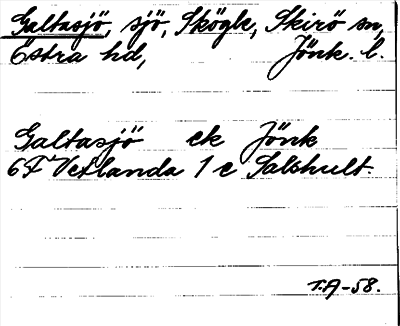 Galtasjö, sjö, Skögle, Skirö sn,
Östra hd, Jönk. l.
Galtasjö ek Jönk
6F Vetlanda 1 e Salshult.
T.A-58.